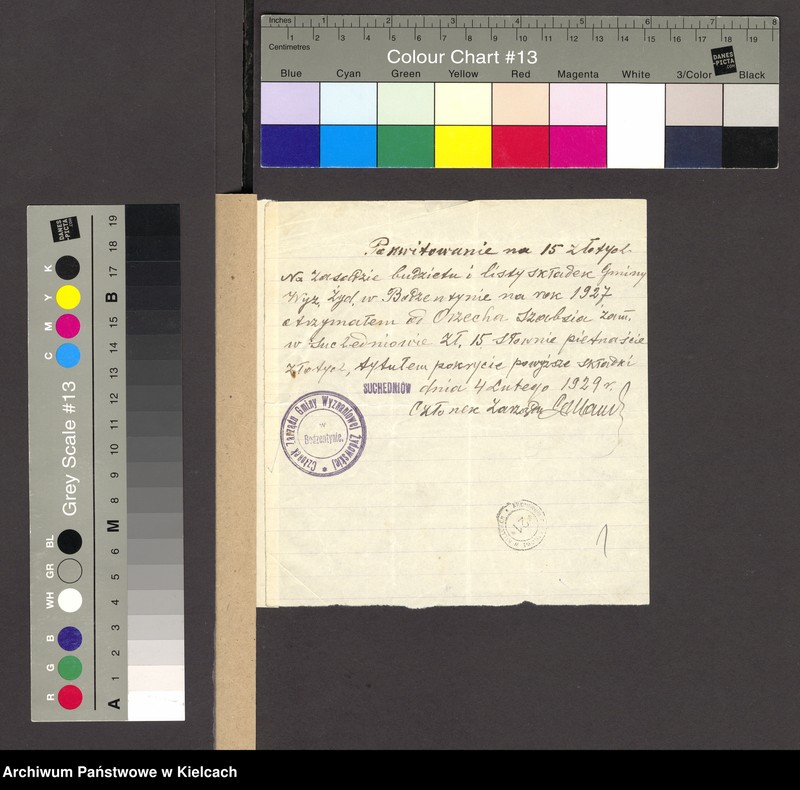 Inches 1 2 3 4 5 6 7 8
Centimetres 1 2 3 4 5 6 7 8 9 10 11 12 13 14 15 16 17 18 19
Colour Chart #13
DANES-PICTA.COM
Blue Cyan Green Yellow Red Magenta White 3/Color Black
Pokwitowanie na 15 złotych
Na zasadzie budżetu i listy składek Gminy
Wyz. Żyd. w Bodzentynie na rok 1927
otrzymałem od Orzecha Szabsia zam.
w Suchedniowie Zł. 15 słownie piętnaście
złotych, tytułem pokrycie powyższe składki
SUCHEDNIÓW dnia 4 Lutego 1929 r.
Członek Zarządu
Członek Zarządu Gminy Wyznaniowej Żydowskiej
w
Bodzentynie.
21
1
DANES-PICTA.COM
Grey Scale #13
C M Y K
R G B WH GR BL
A 1 2 3 4 5 6 M 8 9 10 11 12 13 14 15 B 17 18 19
Archiwum Państwowe w Kielcach